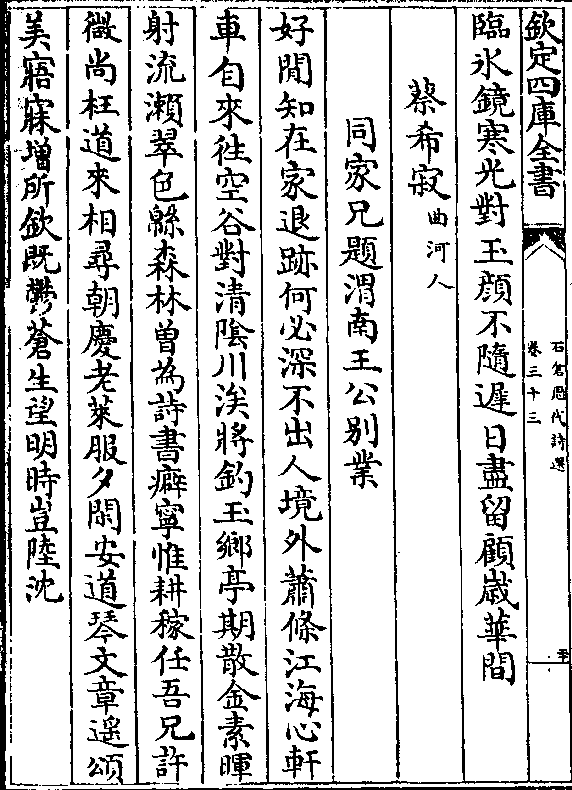 欽定四庫全書
石倉歷代詩選
卷三十三
臨氷鏡寒光對玉顔不隨遲日盡留顧嵗華間
蔡希寂曲河人
同家兄題渭南王公别業
好閒知在家退跡何必深不出人境外蕭條江海心軒
車自來往空谷對清隂川涘將釣玉鄉亭期散金素暉
射流瀬翠色緜森林曽為詩書癖寧惟耕稼任吾兄許
微尚枉道來相尋朝慶老萊服夕閑安道琴文章遥頌
美寤寐增所欽既鬱蒼生望明時豈陸沈